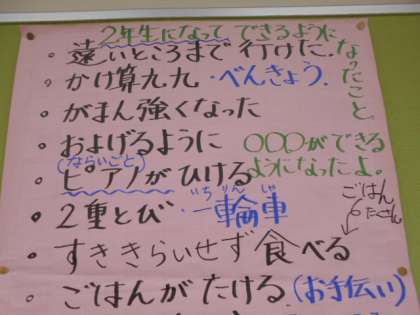 2年生になって できるようになったこと
遠いところまで 行けた.
かけ算九九 ・べんきょう.
がまん強くなった
およげるように
○○○ができるようになったよ。
(ならいごと)
ピアノがひける
2重とび ・一輪車
いちりんしゃ
すききらいせず 食べる
ごはん
たくさん
ごはんがたける (お手伝い)